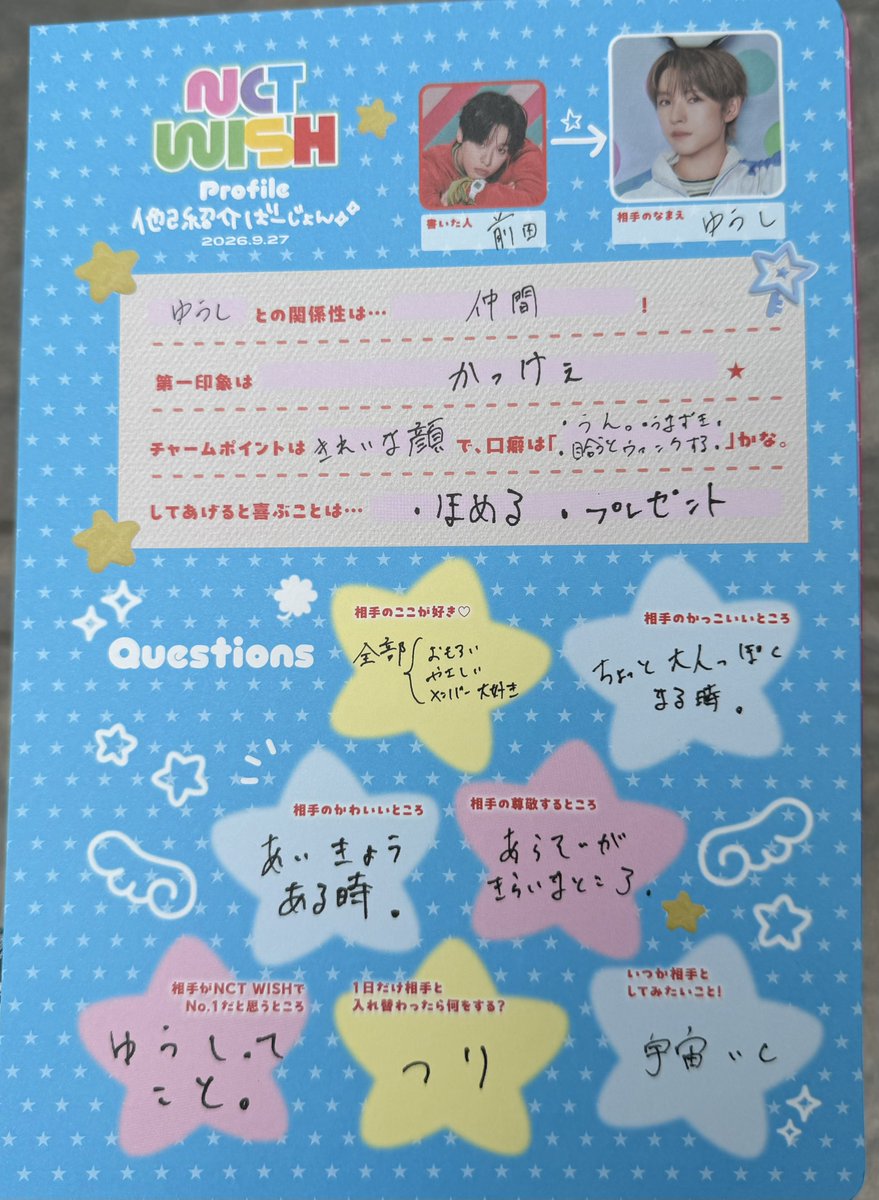 NCT
WISH
Profile
他己紹介ばーじょん
2026.9.27
書いた人 前田
相手のなまえ ゆうし
ゆうし との関係性は… 仲間 !
第一印象は かっけぇ ★
チャームポイントは きれいな顔 で、口癖は「・うん。・うなずき。
・目合うとウィンクする。」かな。
してあげると喜ぶことは… ・ほめる ・プレゼント
Questions
相手のここが好き♡
全部 おもろい
やさしい
メンバー大好き
相手のかっこいいところ
ちょっと大人っぽく
なる時。
相手のかわいいところ
あいきょう
ある時。
相手の尊敬するところ
あらそいが
きらいなところ。
相手がNCT WISHで
No.1だと思うところ
ゆうしって
こと。
1日だけ相手と
入れ替わったら何をする?
つり
いつか相手と
してみたいこと!
宇宙いく